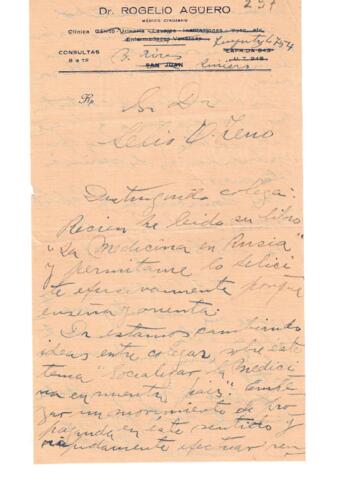 Dr. ROGELIO AGÜERO
MÉDICO CIRUJANO
Clínica Génito Urinaria
Enfermedades Venéreas
CONSULTAS
8 a 12
B. Aires
SAN JUAN
U. T. 945
Rp.
Sr Dr
Lelio O. Zeno
Distinguido colega:
Recien he leido su libro
"La Medicina en Rusia"
y permitame lo felici
te efusivamente porque
enseña y orienta.
Ia estamos cambiando
ideas entre colegas, sobre este
tema "Socializar la Medici
na en nuestro pais". Empe
zar un movimiento de pro
paganda en este sentido y
rapidamente efectuar reu